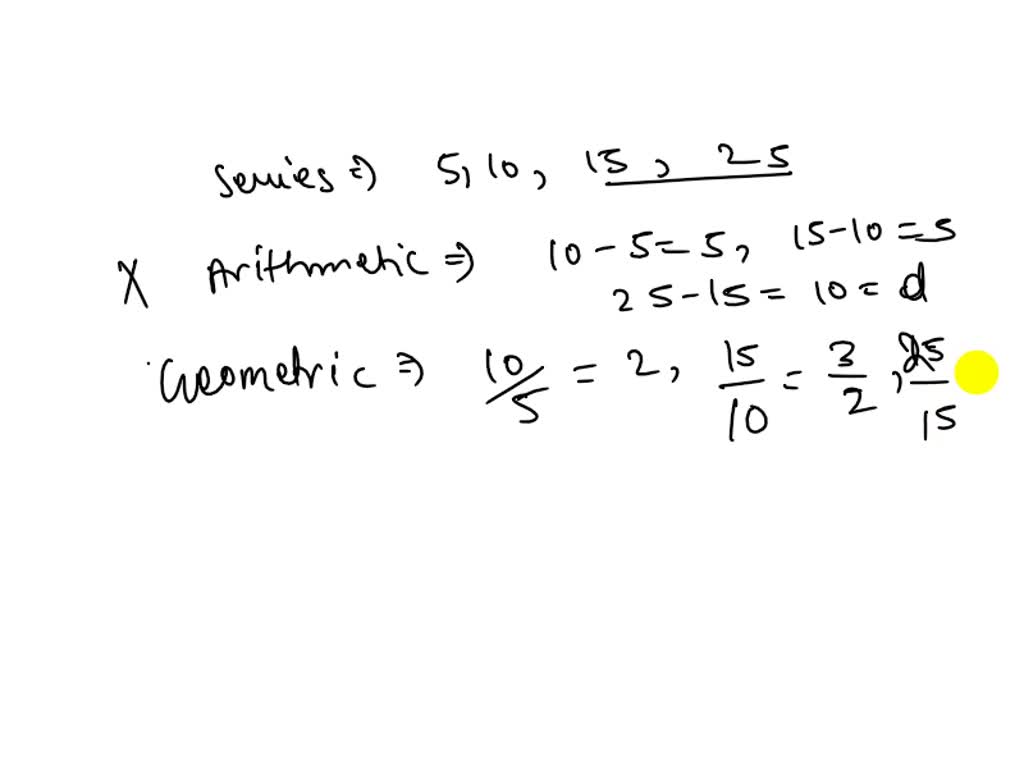 Series ⇒ 5, 10, 15, 25
X Arithmetic ⇒ 10 - 5 = 5, 15 - 10 = 5
25 - 15 = 10 = d
Geometric ⇒ 10/5 = 2, 15/10 = 3/2, 25/15